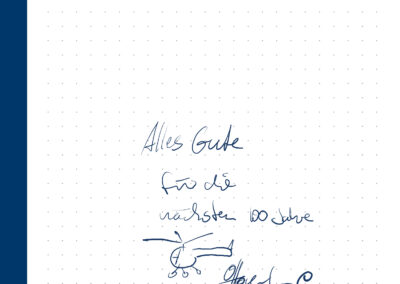 Alles Gute
für die
nächsten 100 Jahre